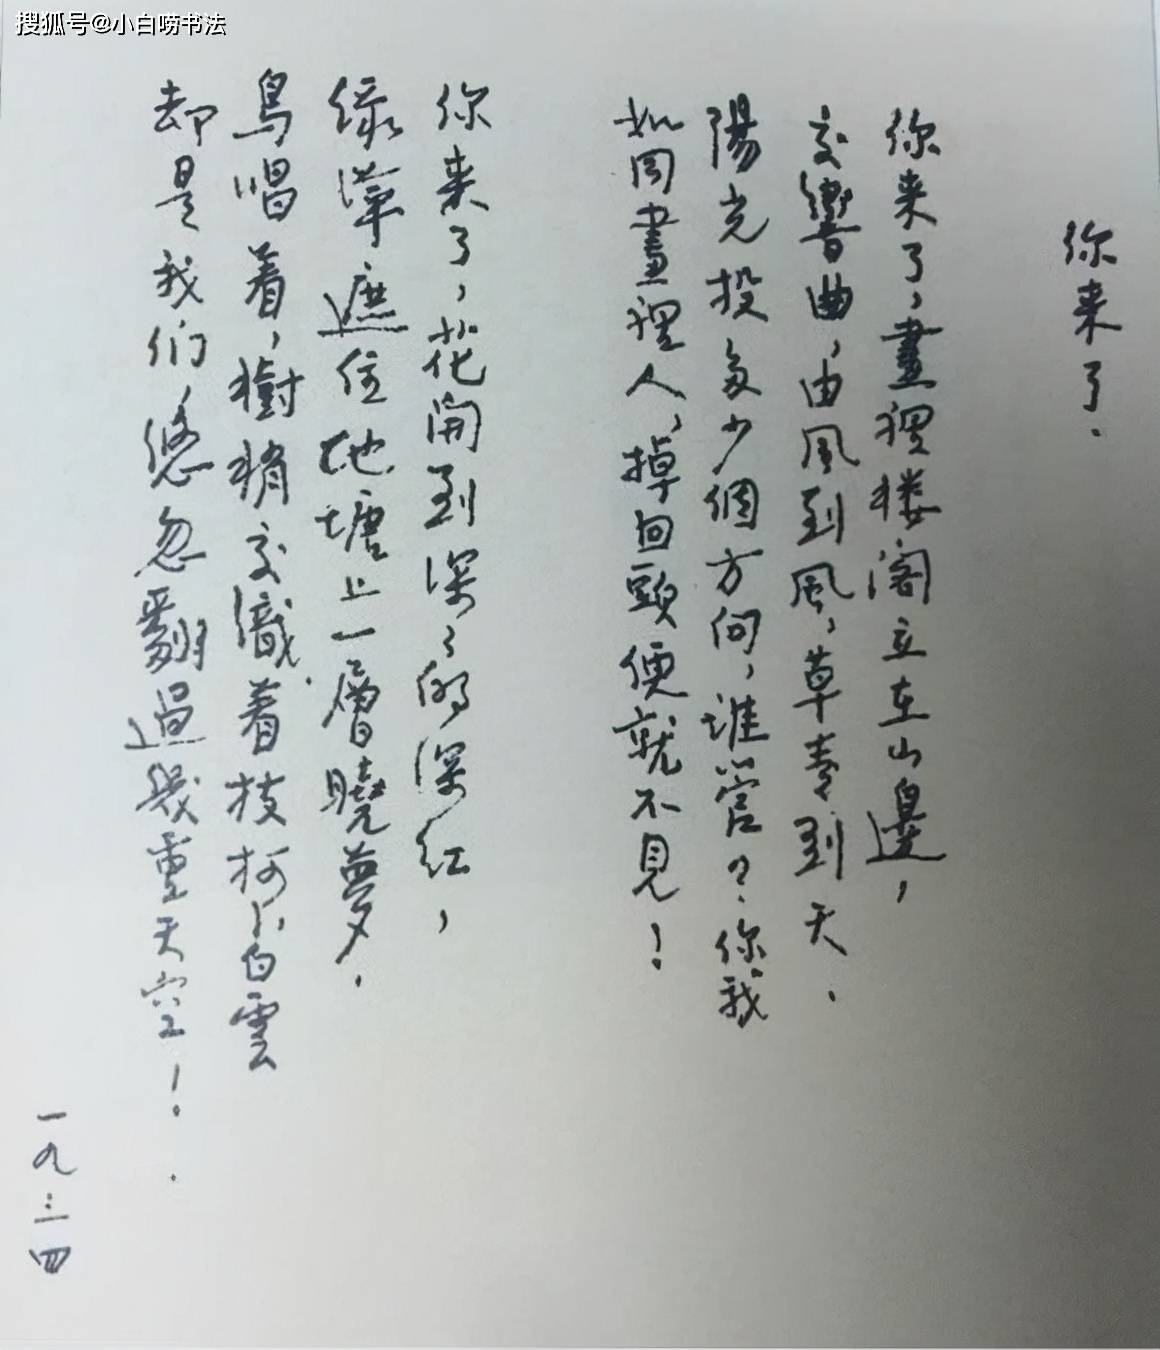 搜狐号@小白唠书法
你来了.
你来了,畫裡楼阁立在山邊,
交響曲,由風到風,草青到天.
陽光投多少個方向,誰管?你我
如同畫裡人,掉回頭便就不見!
你来了,花開到深々的深紅,
綠萍遮住池塘上一層曉夢.
鳥唱着,樹梢交織着枝柯,白雲
却是我们,悠忽翻過幾重天空!
一九三四